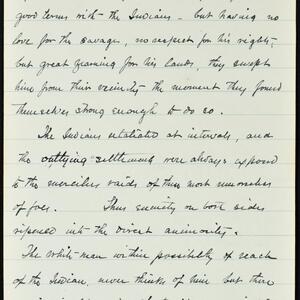 good terms with the Indians - but having no
love for the savage, no respect for his rights,
but great yearning for his lands, they swept
him from their vicinity the moment they found
themselves strong enough to do so.
The Indians retaliated at intervals, and
the outlying settlements were always exposed
to the merciless raids of this most remorseless
of foes. Thus enmity on both sides
ripened into the direst animosity.
The white-man within possibility of reach
of the Indian, never thinks of him but there